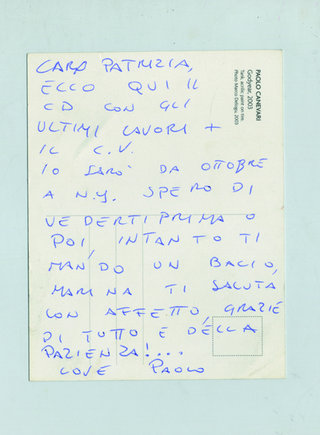 CARA PATRIZIA,
ECCO QUI IL
CD CON GLI
ULTIMI LAVORI +
IL C.V.
IO SARO' DA OTTOBRE
A N.Y. SPERO DI
VEDERTI PRIMA O
POI, INTANTO TI
MANDO UN BACIO,
MARINA TI SALUTA
CON AFFETTO, GRAZIE
DI TUTTO E DELLA
PAZIENZA!...
LOVE PAOLO
PAOLO CANEVARI
Godyear, 2003
Tank, acrilic paint on tire
Photo Marco Delogu, 2003